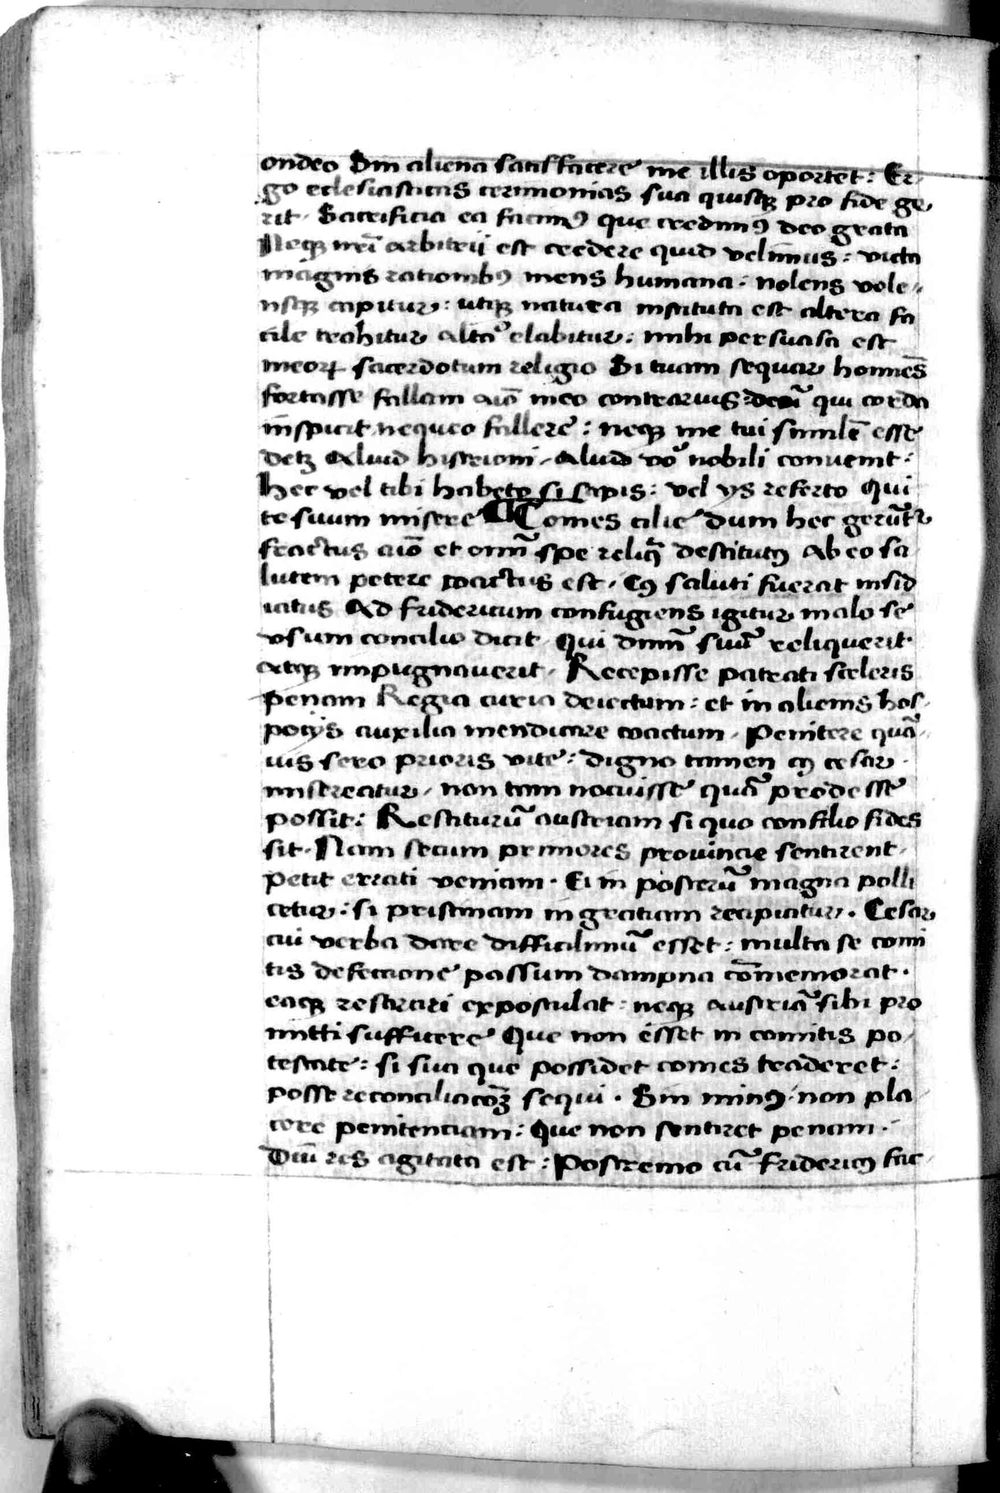 ondeo Sin aliena satisfacere me illis oportet: Er-
go ecclesiasticas cerimonias sua quisqꝫ pro fide ge
rit. Sacrificia ea facimꝰ que credimꝰ deo grata
Neqꝫ nr̃i arbitrii est credere quid velimus: victa
magnis rationibꝰ mens humana. nolens vole-
nsqꝫ capitur: utqꝫ natura instituta est altera fa
cile trahitur altaꝰ elabitur: mihi persuasa est
meoꝝ sacerdotum religio Si tuam sequar homines̄
fortasse fallam aīo meo contrarius: deū qui corda
inspicit nequeo fallere: neqꝫ me tui similē esse
detꝫ Aliud histrioni. Aliud voꝰ nobili convenit:
hec vel tibi habeto si sapis: vel ys referto Qui
te suum misere ¶ Comes cilie dum hec gerūtr
fractus aīo et omī spe reliq̄ destitutꝰ Ab eo sa
lutem petere coactus est. Cꝰ saluti fuerat insid
iatus Ad fridericum confugiens igitur malo se
vsum concilio dicit. Qui dnm̄ suū reliquerit
atqꝫ impugnaverit. Recepisse patrati sceleris
penam Regia curia deiectum: et in alienis hos-
pocijs auxilia mendicare coactum. Penitere quā-
uis sero prioris vite: digno tamen cꝰ cesar
misereatur. non tam nocuisse quā prodesse
possit: Restiturū austriam si quo consilio fides
sit. Nam secum primores provincie sentirent.
Petit errati veniam. Ei in posterū magna polli
cetur: si pristinam in gratiam recipiatur. Cesar
cui verba dare difficilimū esset: multa se comi
tis defectione passum dampna cōmemorat.
eaqꝫ resarciri expostulat: neqꝫ austriā sibi pro
mitti sufficere Que non esset in comitis po-
testate: si sua que possidet comes traderet:
posse reconciliacōꝫ sequi. Sin minꝰ. non pla
cere penitenciam: Que non sentiret penam.
Diu res agitata est: Postremo cū fridericꝰ fac-